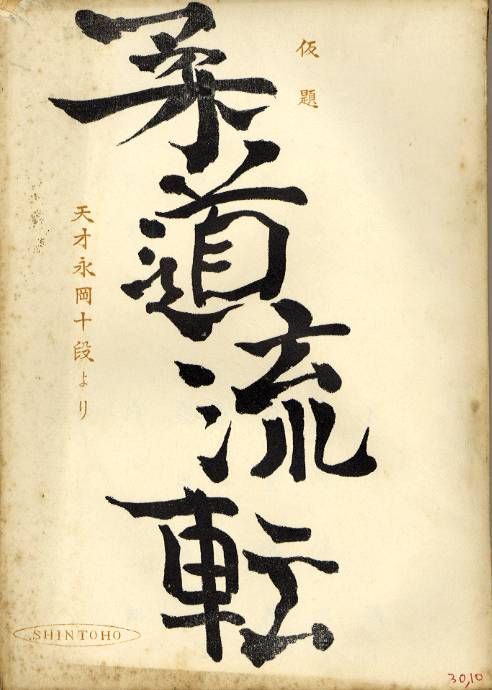 仮題
柔道流転
天才永岡十段より
SHINTOHO
30,10